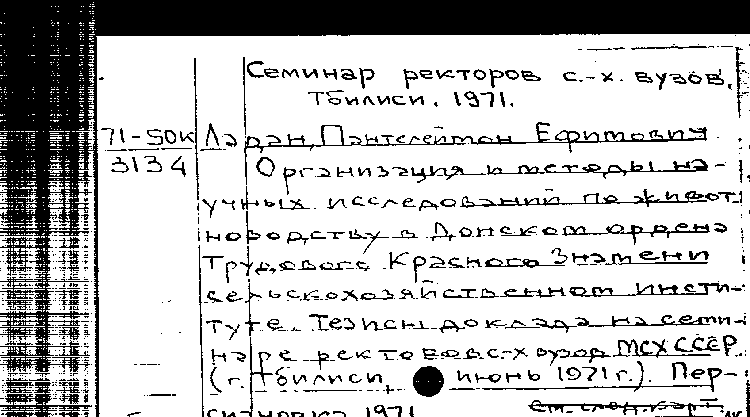 Семинар ректоров с.-х. вузов.
Тбилиси. 1971.
71-50к Ладан, Пантелеймон Ефимович
3134 Организация и методы на-
учных исследований по живот-
новодству в Донском ордена
Трудового Красного Знамени
сельскохозяйственном инсти-
туте. Тезисы доклада на семи-
наре ректоров с-х вузов МСХ СССР
(г. Тбилиси, июнь 1971 г.). Пер-
сиановка 1971
См. след. карт.